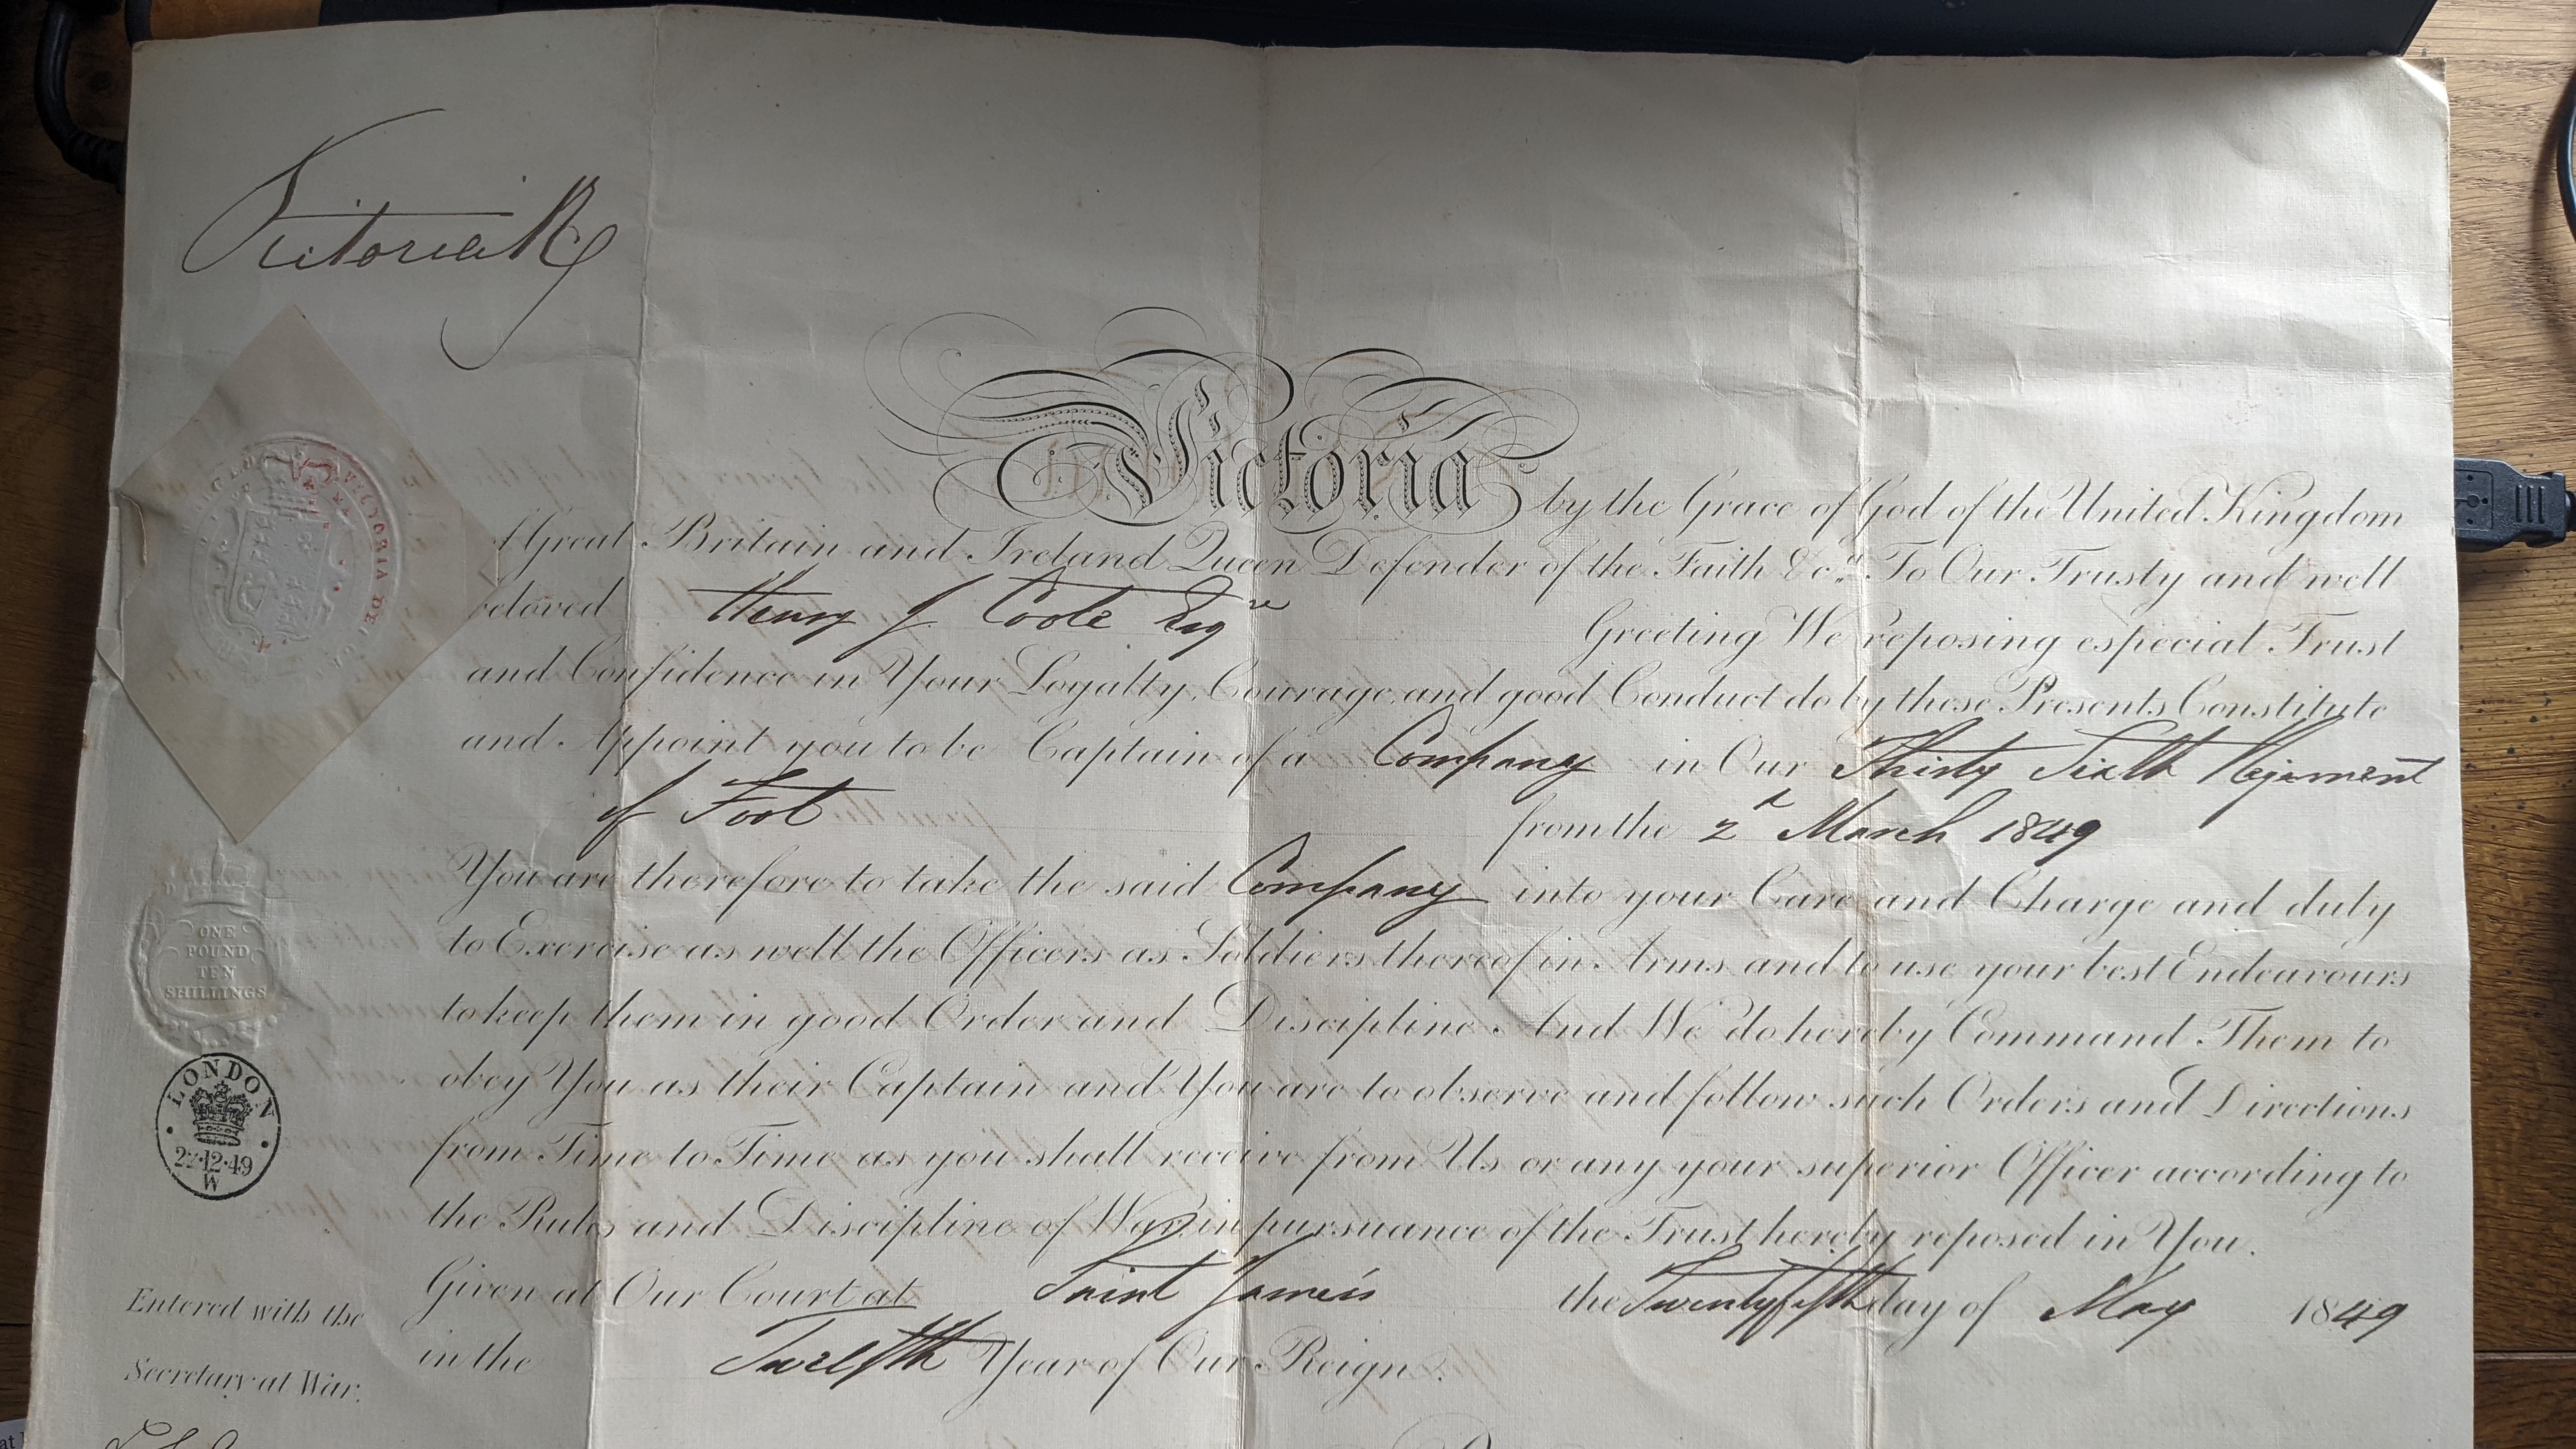 Victoria R
Victoria by the Grace of God of the United Kingdom
of Great Britain and Ireland Queen Defender of the Faith &c.a To Our Trusty and well
beloved Henry J. Coote Esqre Greeting We reposing especial Trust
and Confidence in Your Loyalty, Courage, and good Conduct do by these Presents Constitute
and Appoint you to be Captain of a Company in Our Thirty Sixth Regiment
of Foot from the 2d March 1849
You are therefore to take the said Company into your Care and Charge and duly
to Exercise as well the Officers as Soldiers thereof in Arms and to use your best Endeavours
to keep them in good Order and Discipline And We do hereby Command Them to
obey You as their Captain and You are to observe and follow such Orders and Directions
from Time to Time as you shall receive from Us or any your superior Officer according to
the Rules and Discipline of War in pursuance of the Trust hereby reposed in You.
Given at Our Court at Saint James's the Twenty fifth day of May 1849
in the Twelfth Year of Our Reign.
VICTORIA DEI GR
ONE
POUND
TEN
SHILLINGS
LONDON
W
Entered with the
Secretary at War.